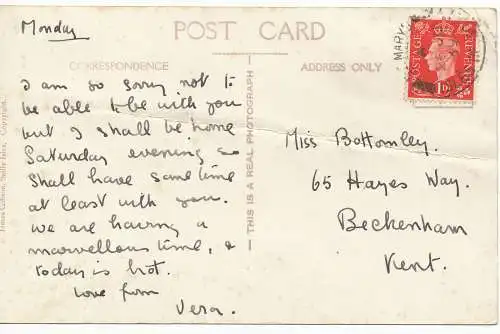 Monday
POST CARD
CORRESPONDENCE
ADDRESS ONLY
I am so sorry not to
be able to be with you
but I shall be home
Saturday evening so
shall have some time
at least with you.
We are having a
marvellous time, &
today is hot.
Love from
Vera.
THIS IS A REAL PHOTOGRAPH
Miss Bottomley.
65 Hayes Way.
Beckenham
Kent.
POSTAGE
REVENUE
1D
MARY